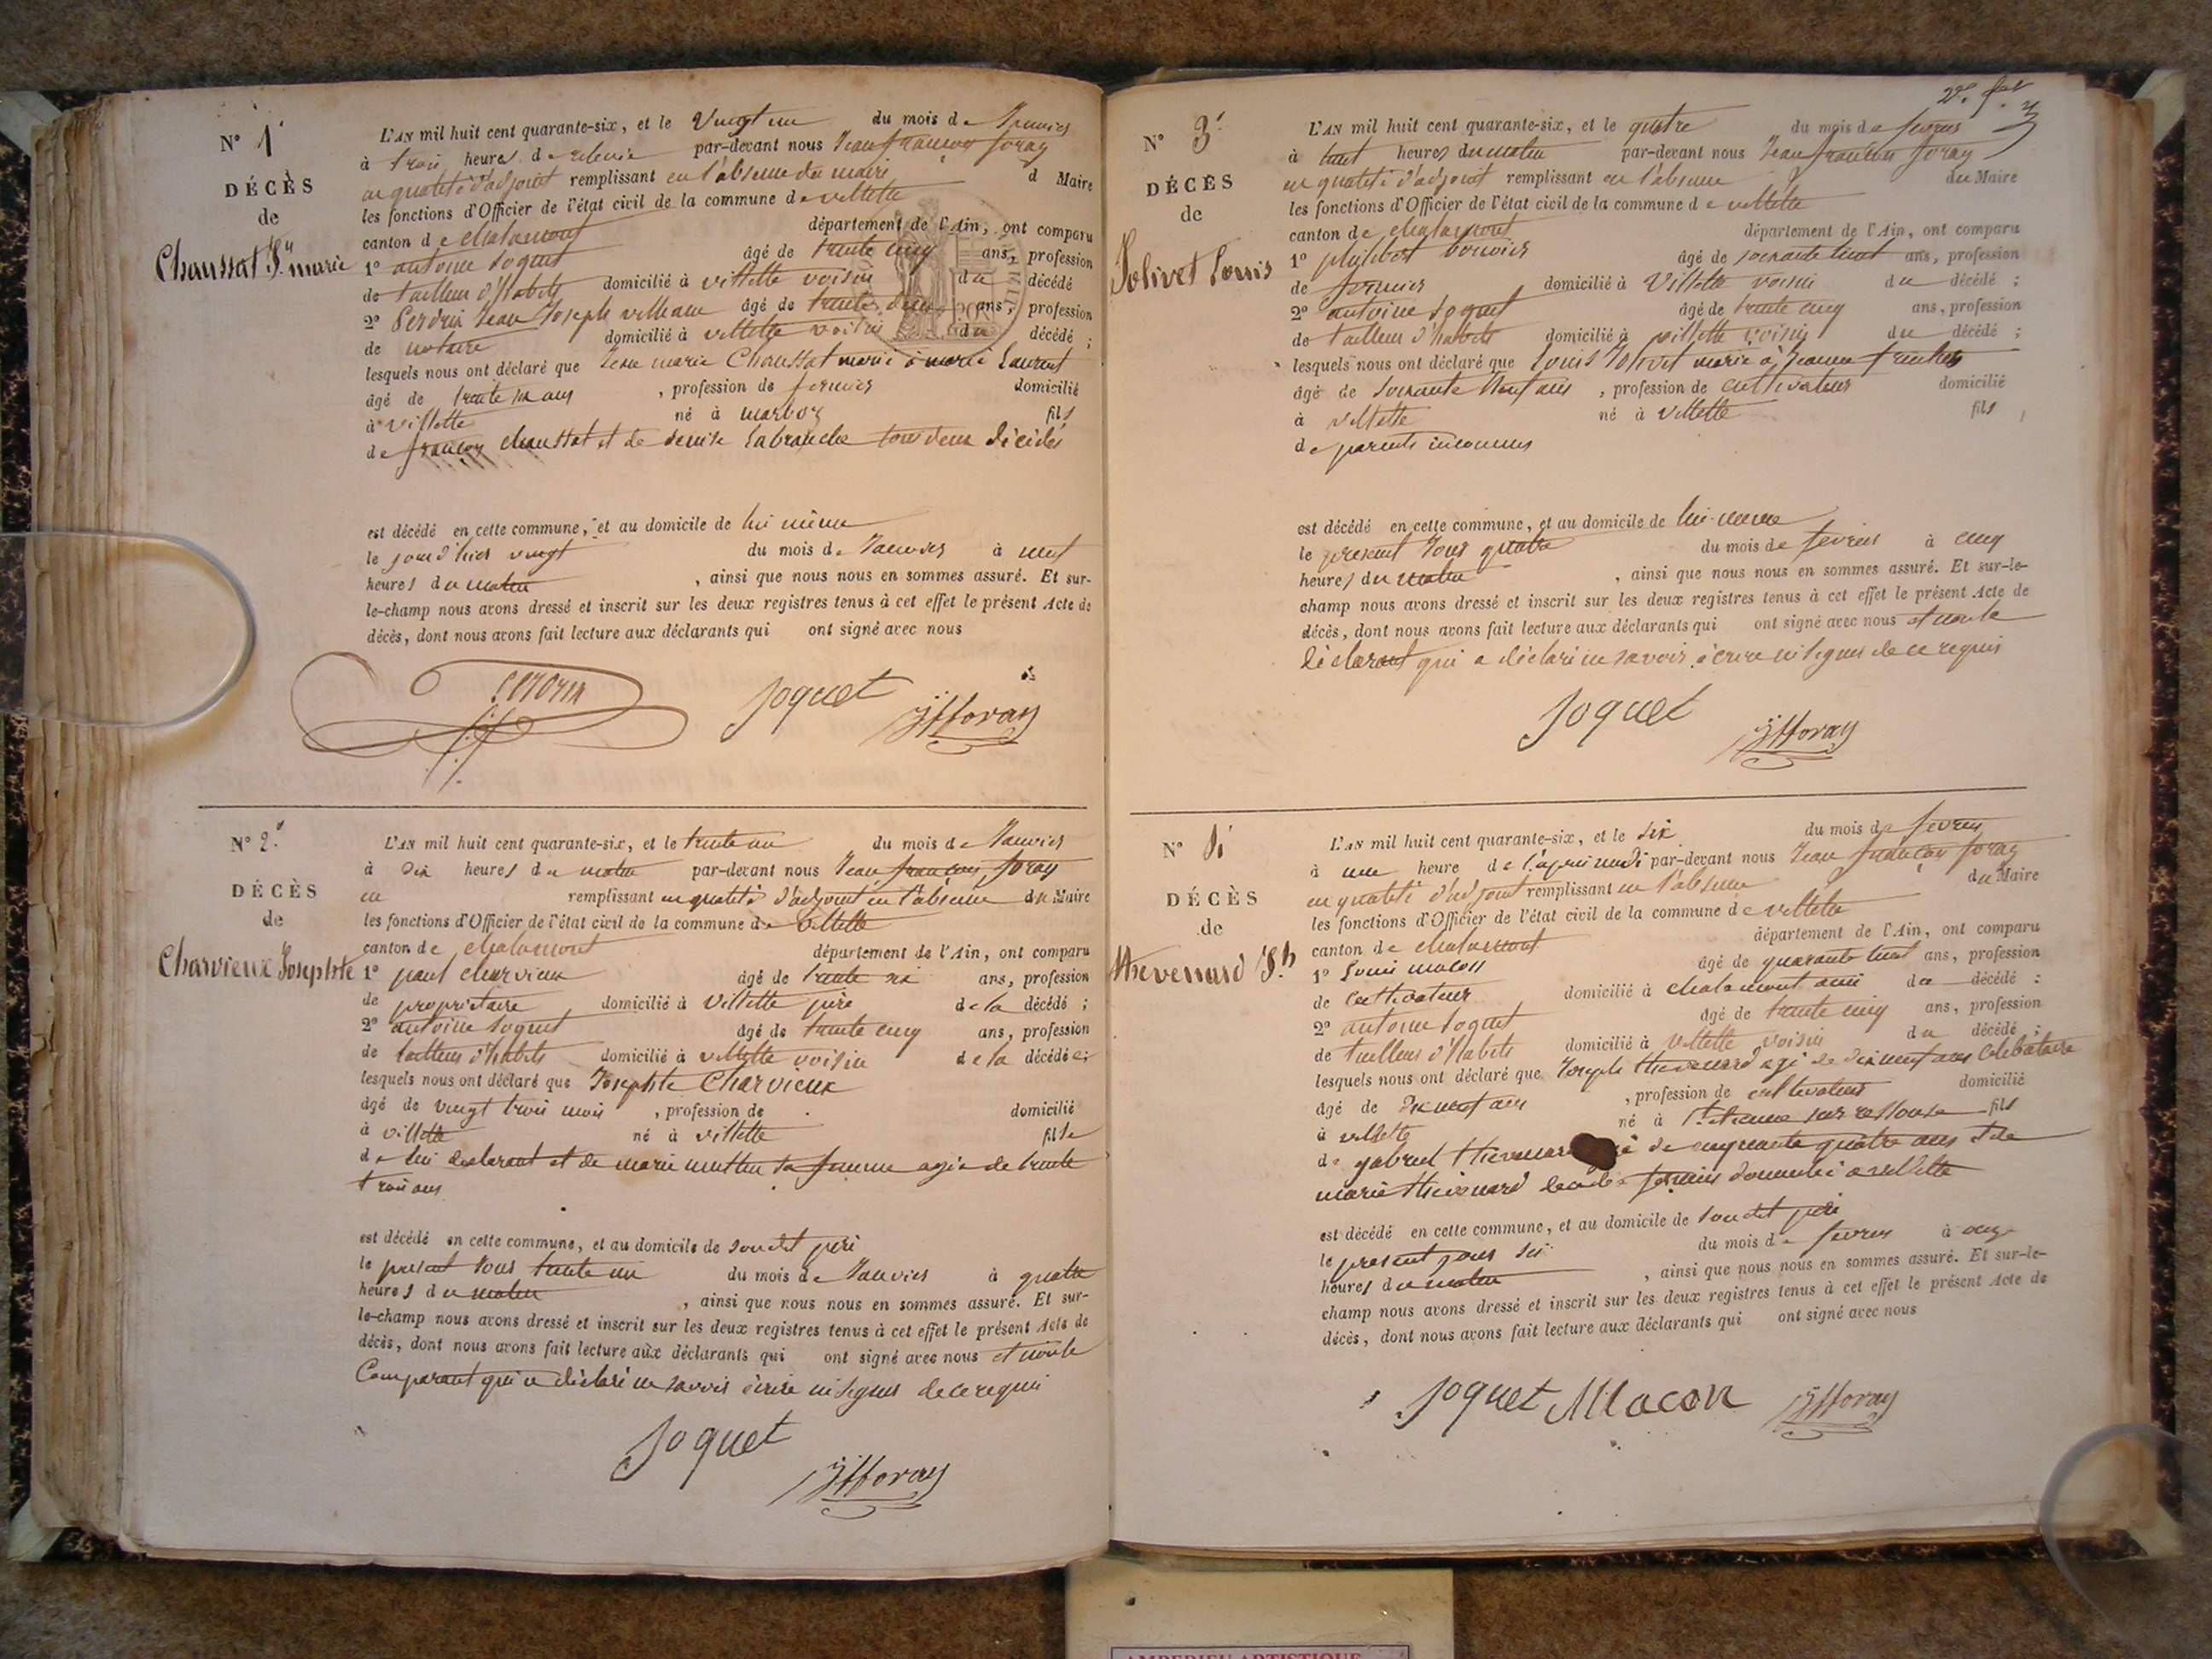 N° 1
DÉCÈS
de
Chaussat Jn marie
L'AN mil huit cent quarante-six, et le vingt un du mois de Janvier
à trois heures de relevée par-devant nous Jean françois foray
en qualité d'adjoint remplissant en l'absence du maire d Maire
les fonctions d'Officier de l'état civil de la commune de villette
canton de chalamont département de l'Ain, ont comparu
1° antoine Joquet âgé de trente cinq ans, profession
de tailleur d'habits domicilié à villette voisin du décédé
2° Perdrix Jean Joseph âgé de trente deux ans, profession
de notaire domicilié à villette voisin du décédé ;
lesquels nous ont déclaré que Jean marie Chaussat marié à marie Laurent
âgé de trente six ans , profession de fermier domicilié
à villette né à marboz fils
de françois chaussat et de denise Labranche tous deux décédés
est décédé en cette commune, et au domicile de lui même
le jour d'hier vingt du mois de Janvier à neuf
heures du matin , ainsi que nous nous en sommes assuré. Et sur-
le-champ nous avons dressé et inscrit sur les deux registres tenus à cet effet le présent Acte de
décès, dont nous avons fait lecture aux déclarants qui ont signé avec nous
Joquet
JFforay
N° 2
DÉCÈS
de
Charvieux Josephte
L'AN mil huit cent quarante-six, et le trente un du mois de Janvier
à dix heures du matin par-devant nous Jean françois foray
en remplissant en qualité d'adjoint en l'absence du Maire
les fonctions d'Officier de l'état civil de la commune de villette
canton de chalamont département de l'Ain, ont comparu
1° paul charvieux âgé de trente six ans, profession
de propriétaire domicilié à villette père de la décédé ;
2° antoine Joquet âgé de trente cinq ans, profession
de tailleur d'habits domicilié à villette voisin de la décédée ;
lesquels nous ont déclaré que Josephte Charvieux
âgé de vingt trois mois , profession de domicilié
à villette né à villette fille
de lui declarant et de marie sa femme agée de trente
trois ans
est décédé en cette commune, et au domicile de son dit père
le présent jour trente un du mois de Janvier à quatre
heures du matin , ainsi que nous nous en sommes assuré. Et sur-
le-champ nous avons dressé et inscrit sur les deux registres tenus à cet effet le présent Acte de
décès, dont nous avons fait lecture aux déclarants qui ont signé avec nous et non le
Comparant qui a déclaré ne savoir écrire ni signer de ce requis
Joquet
JFforay
N° 3
DÉCÈS
de
Jolivet Louis
L'AN mil huit cent quarante-six, et le quatre du mois de fevrier
à huit heures du matin par-devant nous Jean françois foray
en qualité d'adjoint remplissant en l'absence du Maire
les fonctions d'Officier de l'état civil de la commune de villette
canton de chalamont département de l'Ain, ont comparu
1° philibert bouvier âgé de soixante huit ans, profession
de fermier domicilié à Villette voisin du décédé ;
2° antoine Joquet âgé de trente cinq ans, profession
de tailleur d'habits domicilié à villette voisin du décédé ;
lesquels nous ont déclaré que Louis Jolivet marié à Jeanne
âgé de soixante neuf ans , profession de cultivateur domicilié
à villette né à villette fils
de parents inconnus
est décédé en cette commune, et au domicile de lui-même
le présent jour quatre du mois de fevrier à cinq
heures du matin , ainsi que nous nous en sommes assuré. Et sur-le-
champ nous avons dressé et inscrit sur les deux registres tenus à cet effet le présent Acte de
décès, dont nous avons fait lecture aux déclarants qui ont signé avec nous et non le
déclarant qui a déclaré ne savoir écrire ni signer de ce requis
Joquet
JFforay
N° 4
DÉCÈS
de
thevenard Jh
L'AN mil huit cent quarante-six, et le six du mois de fevrier
à une heure de l'après midi par-devant nous Jean françois foray
en qualité d'adjoint remplissant en l'absence du Maire
les fonctions d'Officier de l'état civil de la commune de villette
canton de chalamont département de l'Ain, ont comparu
1° Louis macon âgé de quarante huit ans, profession
de cultivateur domicilié à chalamont ami du décédé ;
2° antoine Joquet âgé de trente cinq ans, profession
de tailleur d'habits domicilié à villette voisin du décédé ;
lesquels nous ont déclaré que Joseph thevenard agé de dix neuf ans célibataire
âgé de dix neuf ans , profession de cultivateur domicilié
à villette né à St etienne sur ressouse fils
de gabriel thevenard de cinquante quatre ans et de
marie thevenard fermiers domiciliés à villette
est décédé en cette commune, et au domicile de son dit père
le présent jour six du mois de fevrier à onze
heures du matin , ainsi que nous nous en sommes assuré. Et sur-le-
champ nous avons dressé et inscrit sur les deux registres tenus à cet effet le présent Acte de
décès, dont nous avons fait lecture aux déclarants qui ont signé avec nous
Joquet Macon JFforay